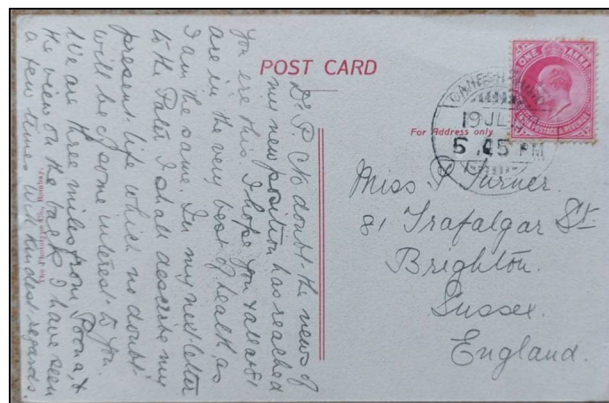 POST CARD
For Address only
ONE ANNA
INDIA POSTAGE & REVENUE
19 JL
5.45 PM
Miss P Turner.
81 Trafalgar St
Brighton.
Sussex.
England.
Dr P No doubt the news of
my new position has reached
you ere this, I hope you & all at 81
are in the very best of health as
I am the same. In my next letter
to the Pater I shall describe my
present life which no doubt
will be of some interest to you.
We are three miles from Poona, &
the view on the back I have seen
a few times with kindest regards.